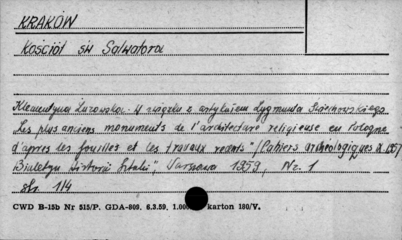 KRAKÓW
Kościół św Salwatora
Klementyna Żurowska - W związku z artykułem Zygmunta Świechowskiego
Les plus anciens monuments de l'architecture religieuse en Pologne
d'après les fouilles et les travaux recents "/Cahiers archéologiques 1957
Biuletyn Historii Sztuki", Warszawa 1959, Nr. 1
str. 114
CWD B-15b Nr 515/P. GDA-809. 6.3.59. 1.000 karton 180/V.